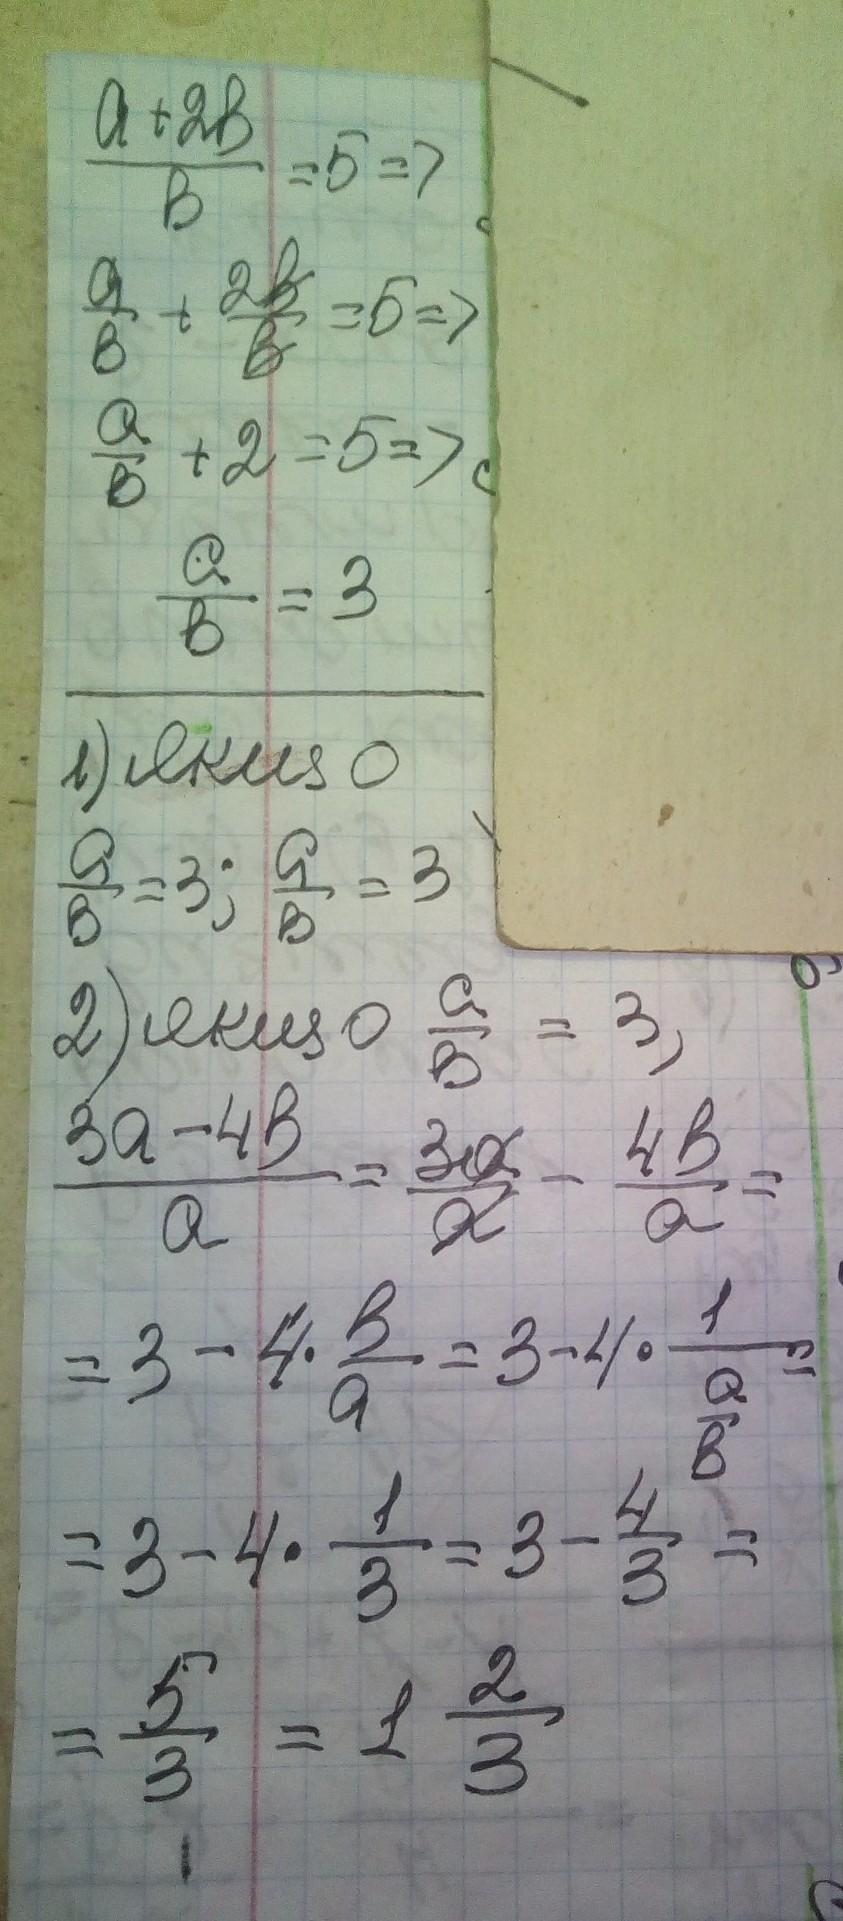 (a+2b)/b = 5 =>
a/b + 2b/b = 5 =>
a/b + 2 = 5 =>
a/b = 3
1) якщо
a/b = 3; a/b = 3
2) якщо a/b = 3,
(3a-4b)/a = 3a/a - 4b/a =
= 3 - 4 · b/a = 3 - 4 · 1/(a/b) =
= 3 - 4 · 1/3 = 3 - 4/3 =
= 5/3 = 1 2/3